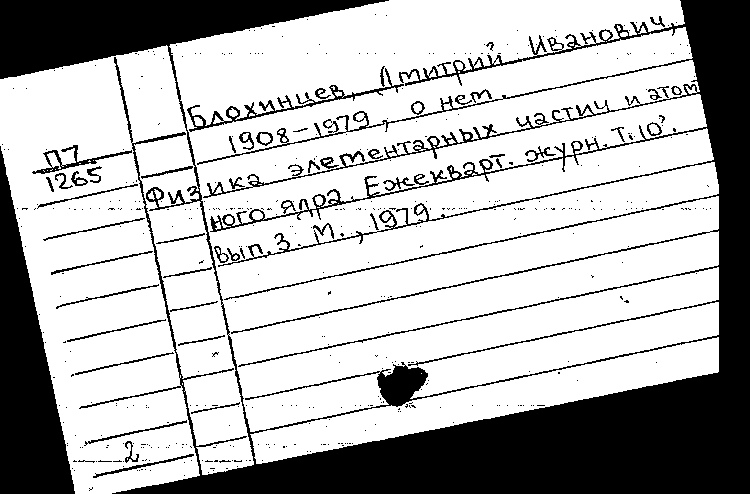 Блохинцев, Дмитрий Иванович,
1908-1979, о нем.
П7
1265
Физика элементарных частиц и атом
ного ядра. Ежекварт. журн. Т. 10,
вып. 3. М., 1979.
2